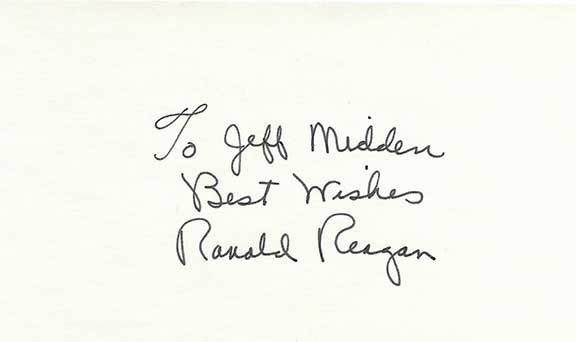 To Jeff Midden
Best Wishes
Ronald Reagan